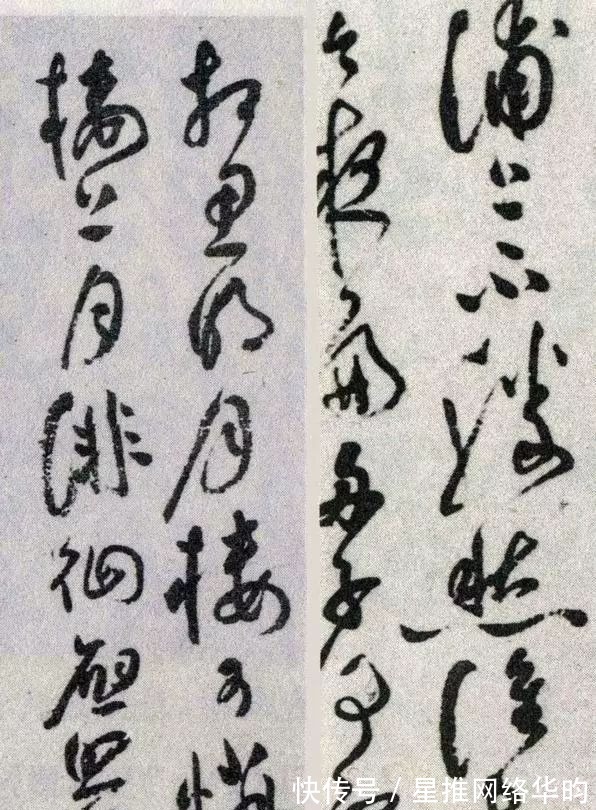 浦上不勝愁誰
今夜扁舟子何
相思明月樓可憐
樓上月徘徊應照
快传号 / 星推网络华昀